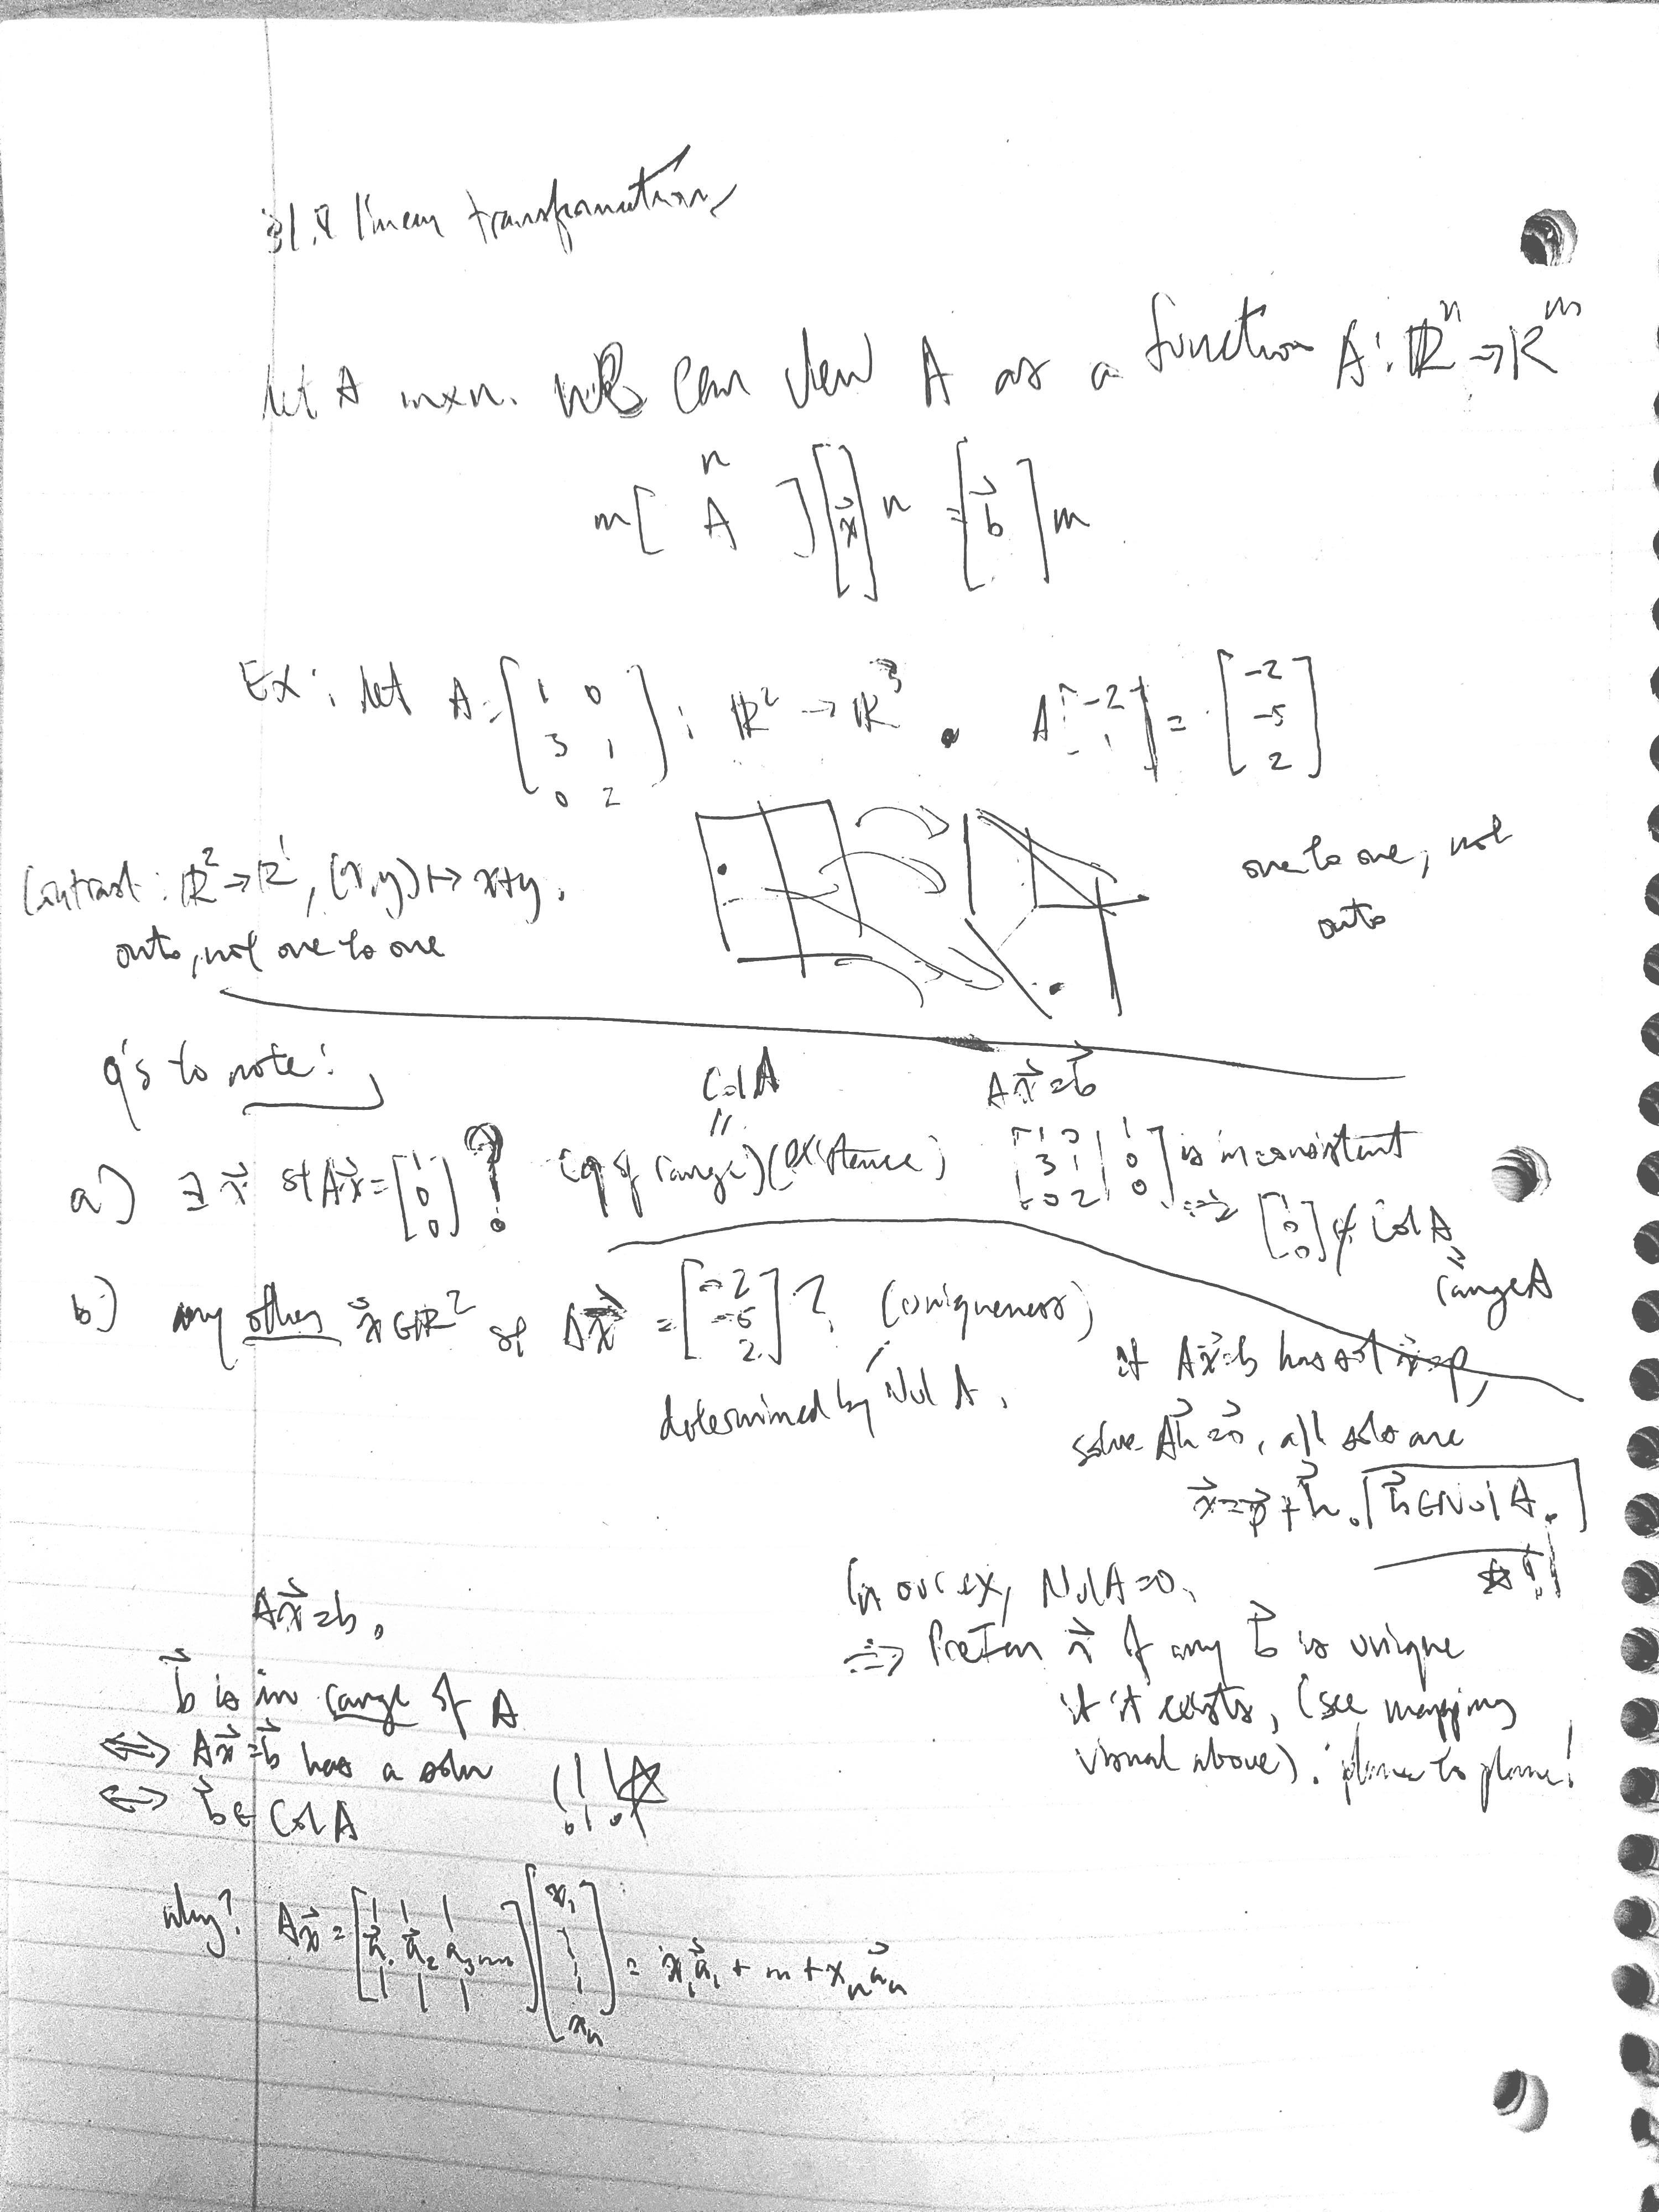 §1.8 linear transformations
let A m×n. we can view A as a function A: ℝⁿ → ℝᵐ
m[ A ] n [x⃗] n = [b⃗] m
Ex: let A = [1 0; 3 1; 0 2] : ℝ² → ℝ³. A[-2; 1] = [-2; -5; 2]
Contrast: ℝ² → ℝ¹, (x,y) ↦ x+y.
onto, not one to one
one to one, not
onto
q's to note:
a) ∃ x⃗ st Ax⃗ = [1; 0; 0] ? (q of range) (existence)
Col A
=
Ax⃗ = b⃗
[1 0 | 1; 3 1 | 0; 0 2 | 0] is inconsistent
⇒ [1; 0; 0] ∉ Col A
=
range A
b) any other x⃗ ∈ ℝ² st Ax⃗ = [-2; -5; 2] ? (uniqueness)
determined by Nul A.
if Ax⃗ = b has sol x⃗ = p,
solve Ah⃗ = 0⃗, all solns are
x⃗ = p⃗ + h⃗. h⃗ ∈ Nul A.
☆!!
In our ex, Nul A = 0.
⇒ PreIm x⃗ of any b⃗ is unique
if it exists, (see mapping
visual above). : plane to plane!
Ax⃗ = b.
b⃗ is in range of A
⟺ Ax⃗ = b⃗ has a soln
⟺ b⃗ ∈ Col A
!!!☆
why? Ax⃗ = [a⃗₁ a⃗₂ a₃ ...] [x₁; ⋮; xₙ] = x₁a⃗₁ + ... + xₙa⃗ₙ